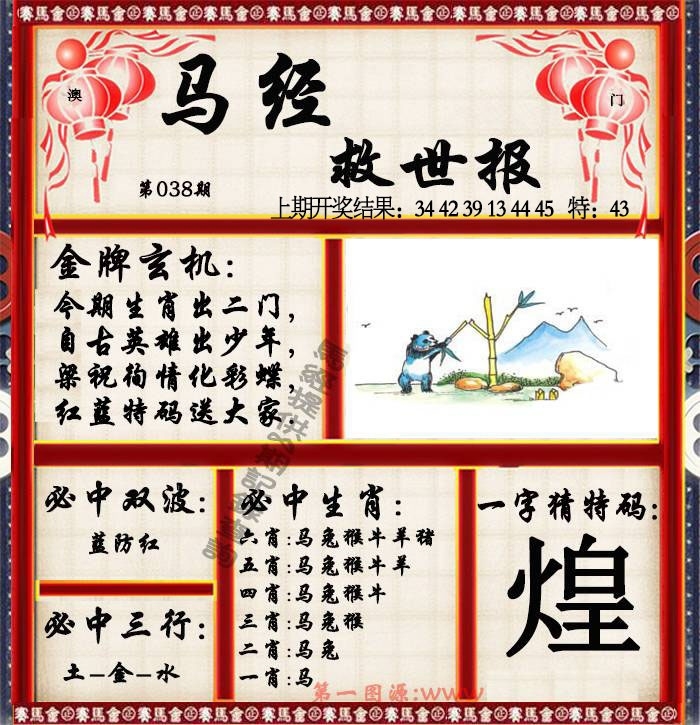 賽馬會正賽馬會正賽馬會正賽馬會正賽馬會正賽馬會
澳 门
马经
救世报
第038期
上期开奖结果：34 42 39 13 44 45 特：43
金牌玄机：
今期生肖出二门，
自古英雄出少年，
梁祝徇情化彩蝶，
红蓝特码送大家．
必中双波：
蓝防红
必中三行：
土－金－水
必中生肖：
六肖：马兔猴牛羊猪
五肖：马兔猴牛羊
四肖：马兔猴牛
三肖：马兔猴
二肖：马兔
一肖：马
一字猜特码：
煌
第一图源：www